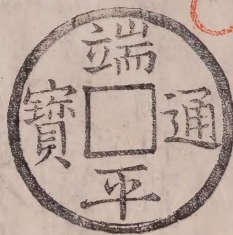 端平通寶